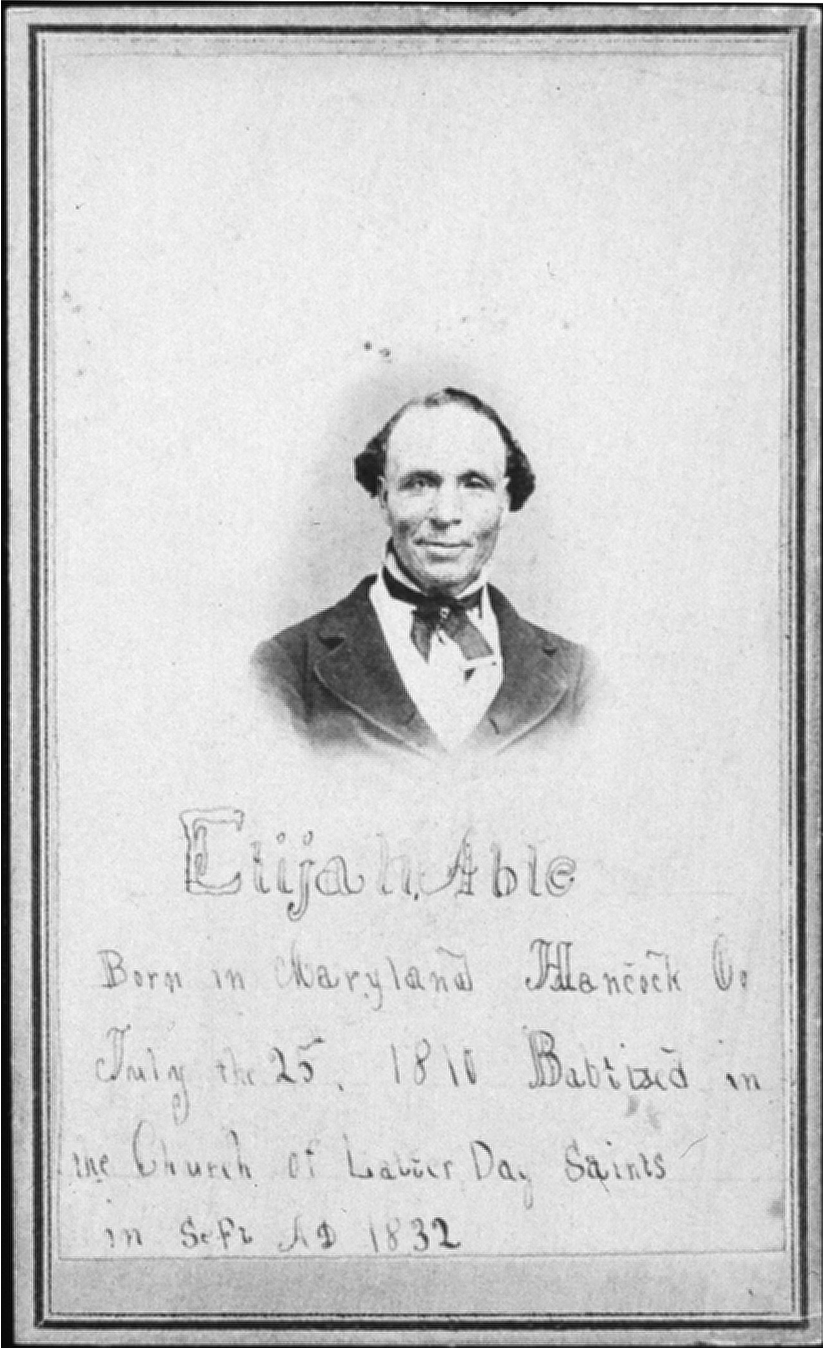 Elijah Able
Born in Maryland Hancock Co
July the 25, 1810 Babtized in
the Church of Latter Day Saints
in Sept AD 1832